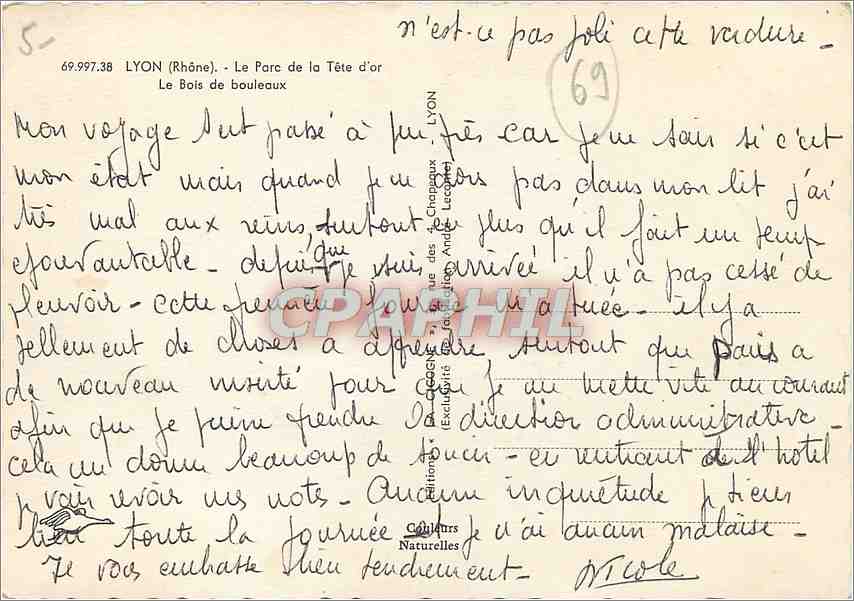 5-
n'est-ce pas joli cette verdure -
69
69.997.38 LYON (Rhône). - Le Parc de la Tête d'or
Le Bois de bouleaux
Mon voyage s'est passé à peu près car je ne sais si c'est
mon état mais quand je ne dors pas dans mon lit j'ai
très mal aux reins, surtout en plus qu'il fait un temps
épouvantable - depuis que je suis arrivée il n'a pas cessé de
pleuvoir - cette première journée m'a tuée - il y a
tellement de choses à apprendre surtout que Paris a
de nouveau insisté pour que je me mette vite au courant
afin que je puisse prendre la direction administrative -
cela me donne beaucoup de soucis - en rentrant de l'hotel
je vais revoir mes notes - Aucune inquiétude je tiens
bien toute la journée et je n'ai aucun malaise -
Je vous embrasse bien tendrement - Nicole
Editions « LA CIGOGNE », rue des 4 Chapeaux LYON
(Exclusivité de fabrication André Leconte)
Couleurs
Naturelles
CPAPHIL